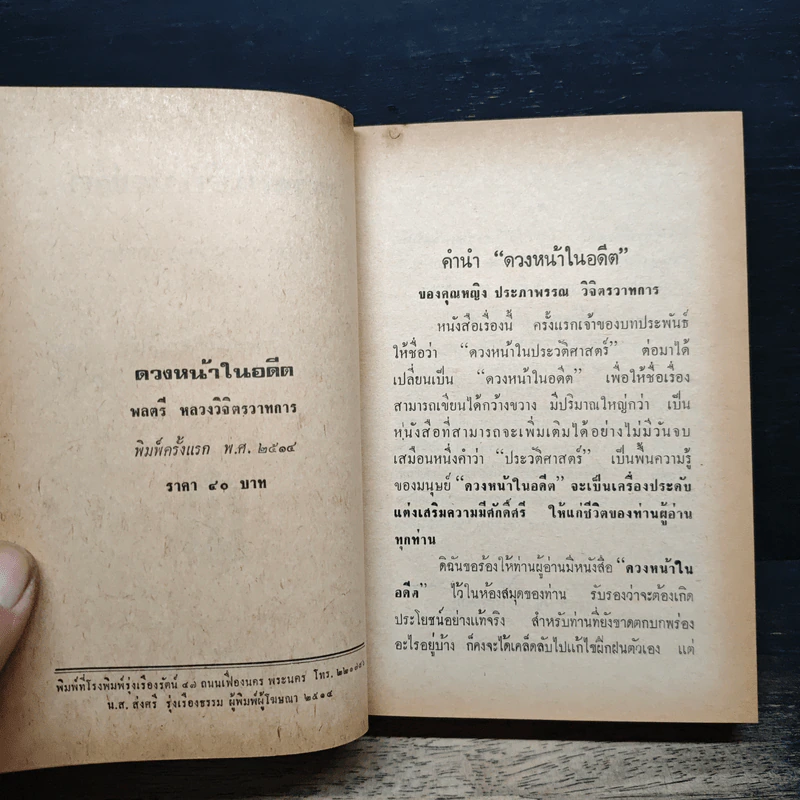 ดวงหน้าในอดีต
พลตรี หลวงวิจิตรวาทการ
พิมพ์ครั้งแรก พ.ศ. ๒๕๑๔
ราคา ๔๐ บาท
พิมพ์ที่โรงพิมพ์รุ่งเรืองรัตน์ ๔๗ ถนนเฟื่องนคร พระนคร โทร.
น.ส. ส่งศรี รุ่งเรืองธรรม ผู้พิมพ์ผู้โฆษณา ๒๕๑๔
คำนำ “ดวงหน้าในอดีต”
ของคุณหญิง ประภาพรรณ วิจิตรวาทการ
หนังสือเรื่องนี้ ครั้งแรกเจ้าของบทประพันธ์
ให้ชื่อว่า “ดวงหน้าในประวัติศาสตร์” ต่อมาได้
เปลี่ยนเป็น “ดวงหน้าในอดีต” เพื่อให้ชื่อเรื่อง
สามารถเขียนได้กว้างขวาง มีปริมาณใหญ่กว่า เป็น
หนังสือที่สามารถจะเพิ่มเติมได้อย่างไม่มีวันจบ
เสมือนหนึ่งคำว่า “ประวัติศาสตร์” เป็นพื้นความรู้
ของมนุษย์ “ดวงหน้าในอดีต” จะเป็นเครื่องประดับ
แต่งเสริมความมีศักดิ์ศรี ให้แก่ชีวิตของท่านผู้อ่าน
ทุกท่าน
ดิฉันขอร้องให้ท่านผู้อ่านมีหนังสือ “ดวงหน้าใน
อดีต” ไว้ในห้องสมุดของท่าน รับรองว่าจะต้องเกิด
ประโยชน์อย่างแท้จริง สำหรับท่านที่ยังขาดตกบกพร่อง
อะไรอยู่บ้าง ก็คงจะได้เคล็ดลับไปแก้ไขฝึกฝนตัวเอง แต่